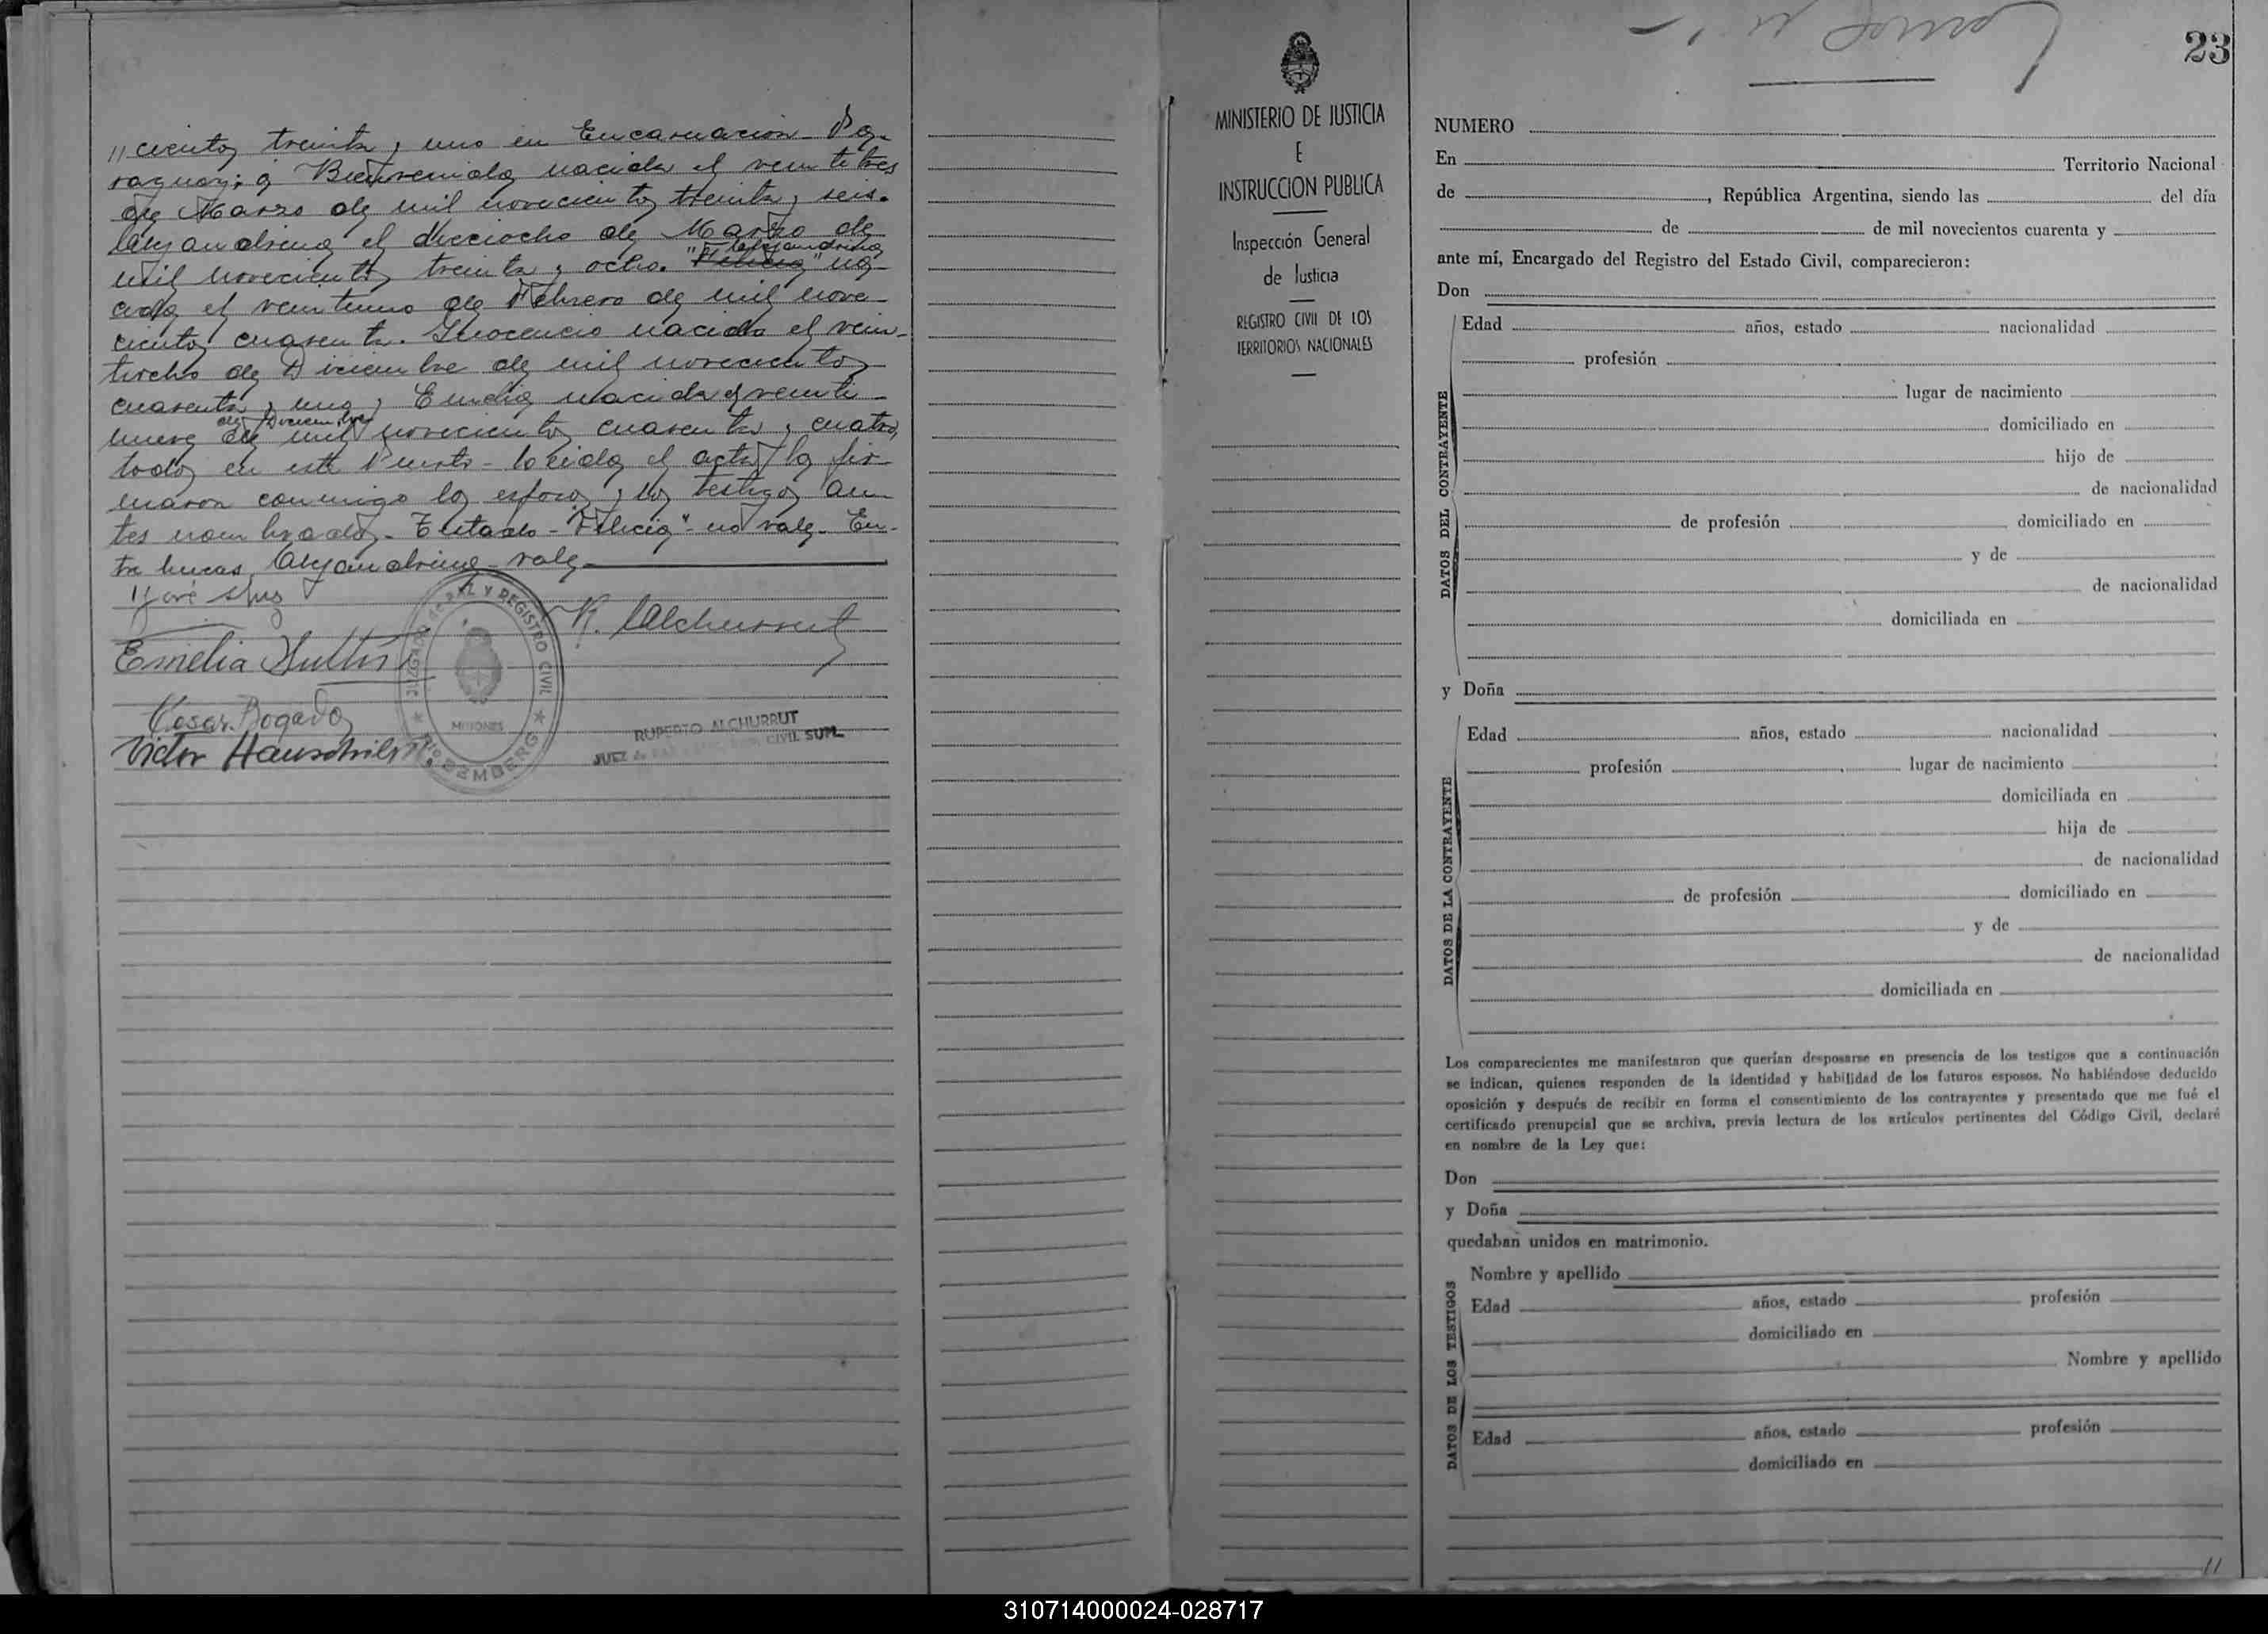 // cientos treinta y uno en Encarnación Pa-
raguay; a Bienvenida nacida el veintitres
de Marzo de mil novecientos treinta y seis.
Alejandrina el dieciocho de Marzo de
mil novecientos treinta y ocho. "Felicia" na-
Alejandrina
cida el veintiuno de Febrero de mil nove-
cientos cuarenta. Inocencio nacido el vein-
tiocho de Diciembre de mil novecientos
cuarenta y uno y Emilia nacida el veinti-
nueve de mil novecientos cuarenta y cuatro,
de Diciembre
todos en este Puerto - Leida el acta la fir-
maron conmigo los esposos y los testigos an-
tes nombrados. - Testado - "Felicia" - no vale. En-
tre lineas Alejandrina - vale
José
Emilia
R. Alchurrut
Cesar Bogado
Victor Hauschild
JUZGADO de PAZ Y REGISTRO CIVIL
MISIONES
Pto. BEMBERG
RUPERTO ALCHURRUT
JUEZ de PAZ CIVIL SUPL.
MINISTERIO DE JUSTICIA
E
INSTRUCCION PUBLICA
Inspección General
de Justicia
REGISTRO CIVIL DE LOS
TERRITORIOS NACIONALES
23
NUMERO
En Territorio Nacional
de , República Argentina, siendo las del día
de de mil novecientos cuarenta y
ante mí, Encargado del Registro del Estado Civil, comparecieron:
Don
DATOS DEL CONTRAYENTE
Edad años, estado nacionalidad
profesión
lugar de nacimiento
domiciliado en
hijo de
de nacionalidad
de profesión domiciliado en
y de
de nacionalidad
domiciliada en
y Doña
DATOS DE LA CONTRAYENTE
Edad años, estado nacionalidad
profesión lugar de nacimiento
domiciliada en
hija de
de nacionalidad
de profesión domiciliado en
y de
de nacionalidad
domiciliada en
Los comparecientes me manifestaron que querían desposarse en presencia de los testigos que a continuación
se indican, quienes responden de la identidad y habilidad de los futuros esposos. No habiéndose deducido
oposición y después de recibir en forma el consentimiento de los contrayentes y presentado que me fué el
certificado prenupcial que se archiva, previa lectura de los artículos pertinentes del Código Civil, declaré
en nombre de la Ley que:
Don
y Doña
quedaban unidos en matrimonio.
DATOS DE LOS TESTIGOS
Nombre y apellido
Edad años, estado profesión
domiciliado en
Nombre y apellido
Edad años, estado profesión
domiciliado en
//
310714000024-028717